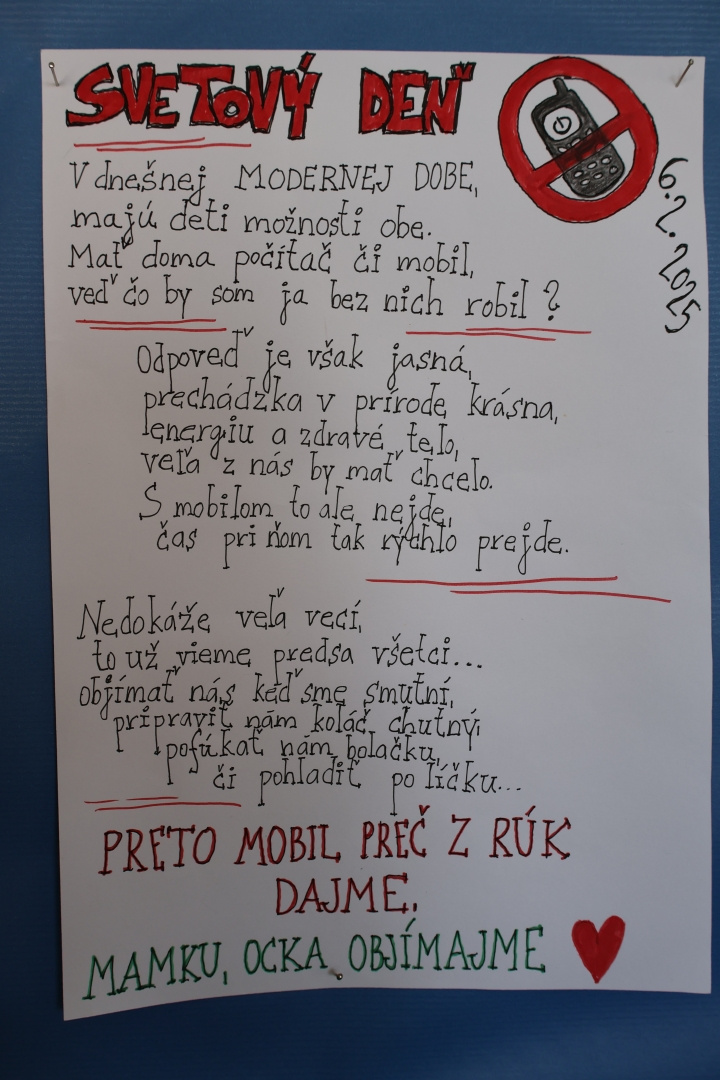 SVETOVÝ DEŇ
6.2.2025
V dnešnej MODERNEJ DOBE,
majú deti možnosti obe.
Mať doma počítač či mobil,
veď čo by som ja bez nich robil?
Odpoveď je však jasná,
prechádzka v prírode krásna,
energiu a zdravé telo,
veľa z nás by mať chcelo.
S mobilom to ale nejde,
čas pri ňom tak rýchlo prejde.
Nedokáže veľa vecí,
to už vieme predsa všetci...
objímať nás keď sme smutní,
pripraviť nám koláč chutný,
pofúkať nám bolačku,
či pohladiť po líčku...
PRETO MOBIL PREČ Z RÚK
DAJME,
MAMKU, OCKA OBJÍMAJME